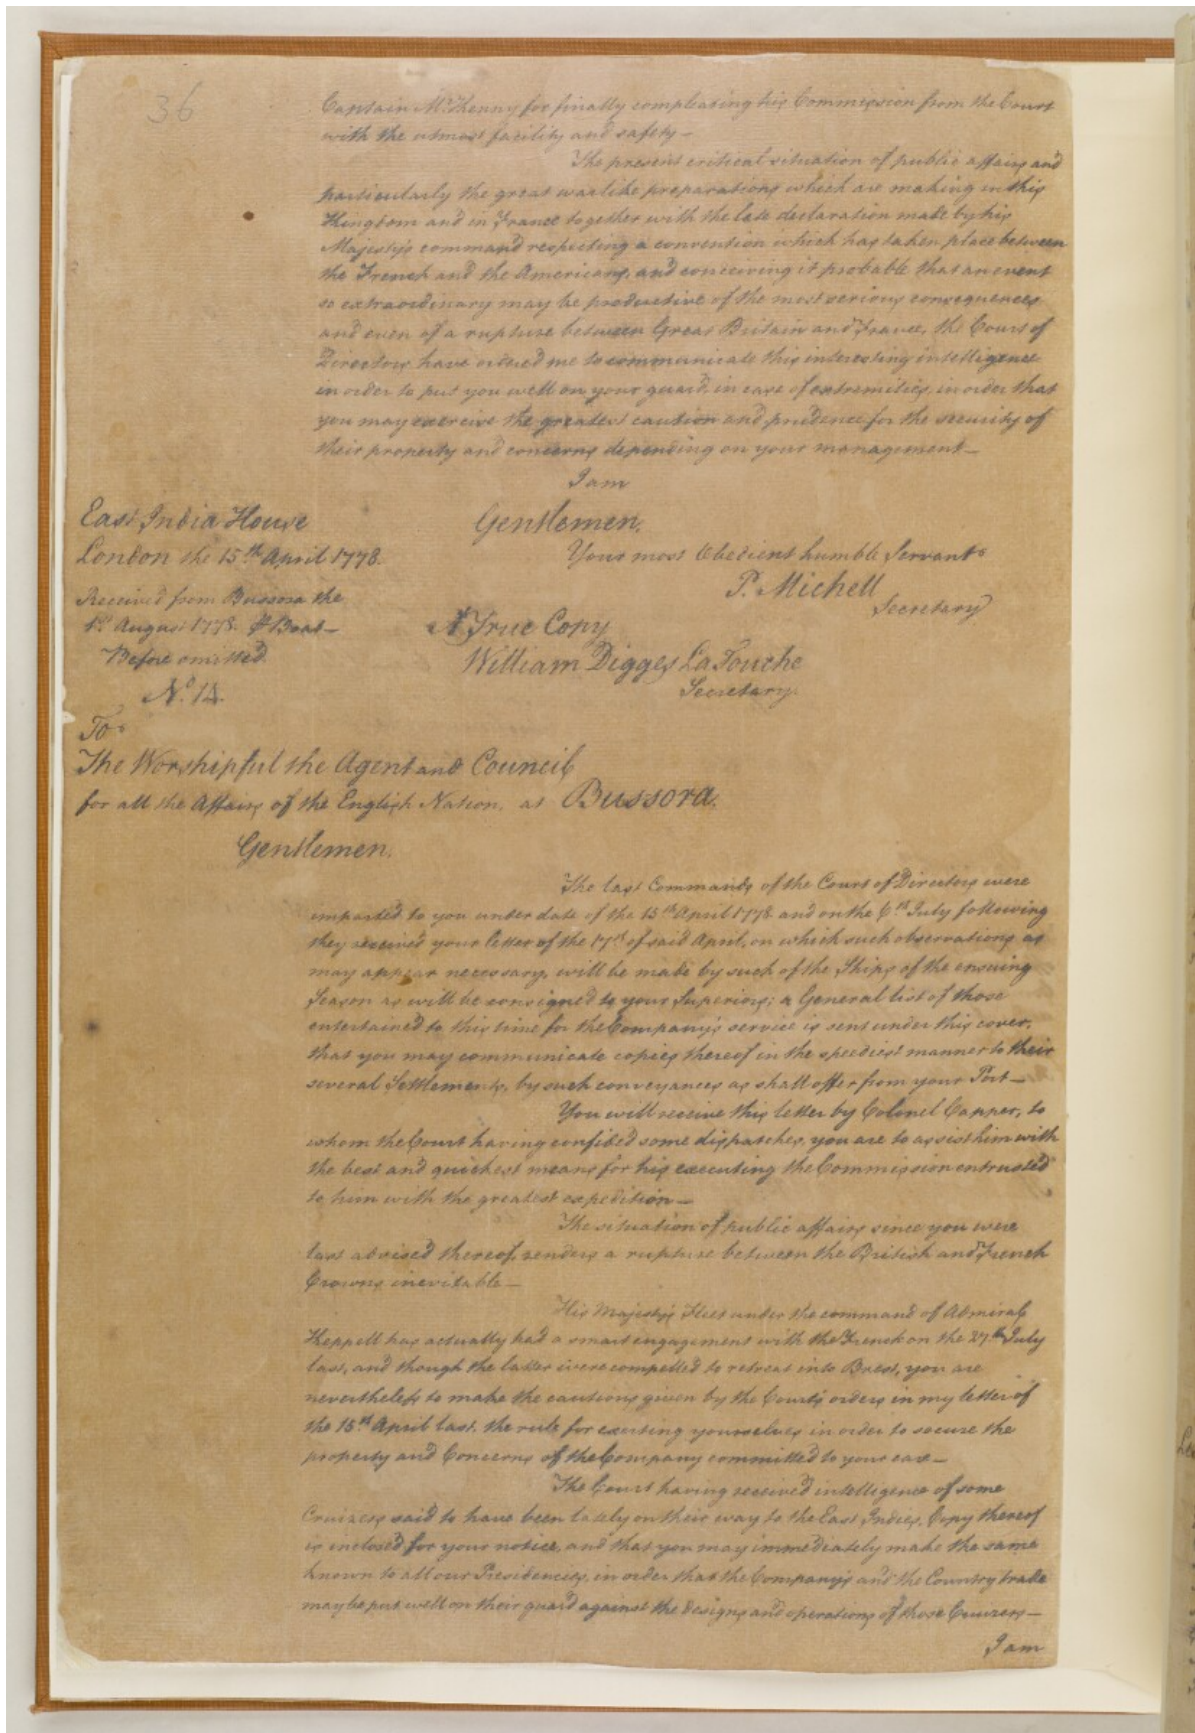 36
Captain McKenny for finally compleating his Commission from the Court
with the utmost facility and safety —
The present critical situation of public affairs and
particularly the great warlike preparations which are making in this
Kingdom and in France together with the late declaration made by his
Majesty's command respecting a convention which has taken place between
the French and the Americans, and conceiving it probable that an event
so extraordinary may be productive of the most serious consequences
and even of a rupture between Great Britain and France, the Court of
Directors have ordered me to communicate this interesting intelligence
in order to put you well on your guard, in case of extremities, in order that
you may exercise the greatest caution and prudence for the security of
their property and concerns depending on your management —
I am
East India House
Gentlemen,
London the 15th April 1778.
Your most Obedient humble Servant
P. Michell
Secretary
Received from Bussora the
1st August 1778. Boat —
Before omitted
A True Copy
William Digges LaTouche
Secretary.
No. 14.
To
The Worshipful the Agent and Council
for all the Affairs of the English Nation, at Bussora.
Gentlemen.
The last Commands of the Court of Directors were
imparted to you under date of the 15th April 1778 and on the 6th July following
they received your letter of the 17th of said April, on which such observations as
may appear necessary, will be made by such of the Ships of the ensuing
Season as will be consigned to your Superiors; a General list of those
entertained to this time for the Company's service is sent under this cover,
that you may communicate copies thereof in the speediest manner to their
several Settlements, by such conveyances as shall offer from your Port —
You will receive this letter by Colonel Capper, to
whom the Court having confided some dispatches, you are to assist him with
the best and quickest means for his executing the Commission entrusted
to him with the greatest expedition —
The situation of public affairs since you were
last advised thereof, renders a rupture between the British and French
Crowns inevitable —
His Majesty's Fleet under the command of Admiral
Keppell has actually had a smart engagement with the French on the 27th July
last, and though the latter were compelled to retreat into Brest, you are
nevertheless to make the cautions given by the Court's orders in my letter of
the 15th April last, the rule for exerting yourselves in order to secure the
property and Concerns of the Company committed to your care —
The Court having received intelligence of some
Cruizers said to have been lately on their way to the East Indies, Copy thereof
is inclosed for your notice, and that you may immediately make the same
known to all our Presidencies, in order that the Company's and the Country trade
may be put well on their guard against the designs and operations of those Cruizers —
I am